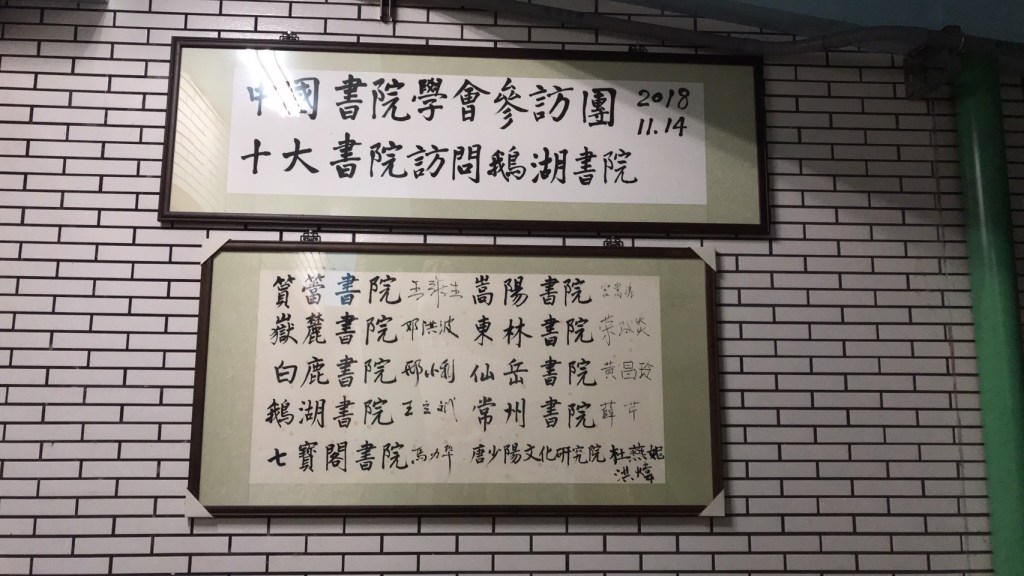 中國書院學會參訪團 2018
11.14
十大書院訪問鵝湖書院
篔簹書院 王維生 嵩陽書院
嶽麓書院 鄧洪波 東林書院 荣
白鹿書院 郞小剑 仙岳書院 黄昌玲
鵝湖書院 王立斌 常州書院 薛芹
七寶閣書院 馬力华 唐少陽文化研究院 杜燕妮
洪炜